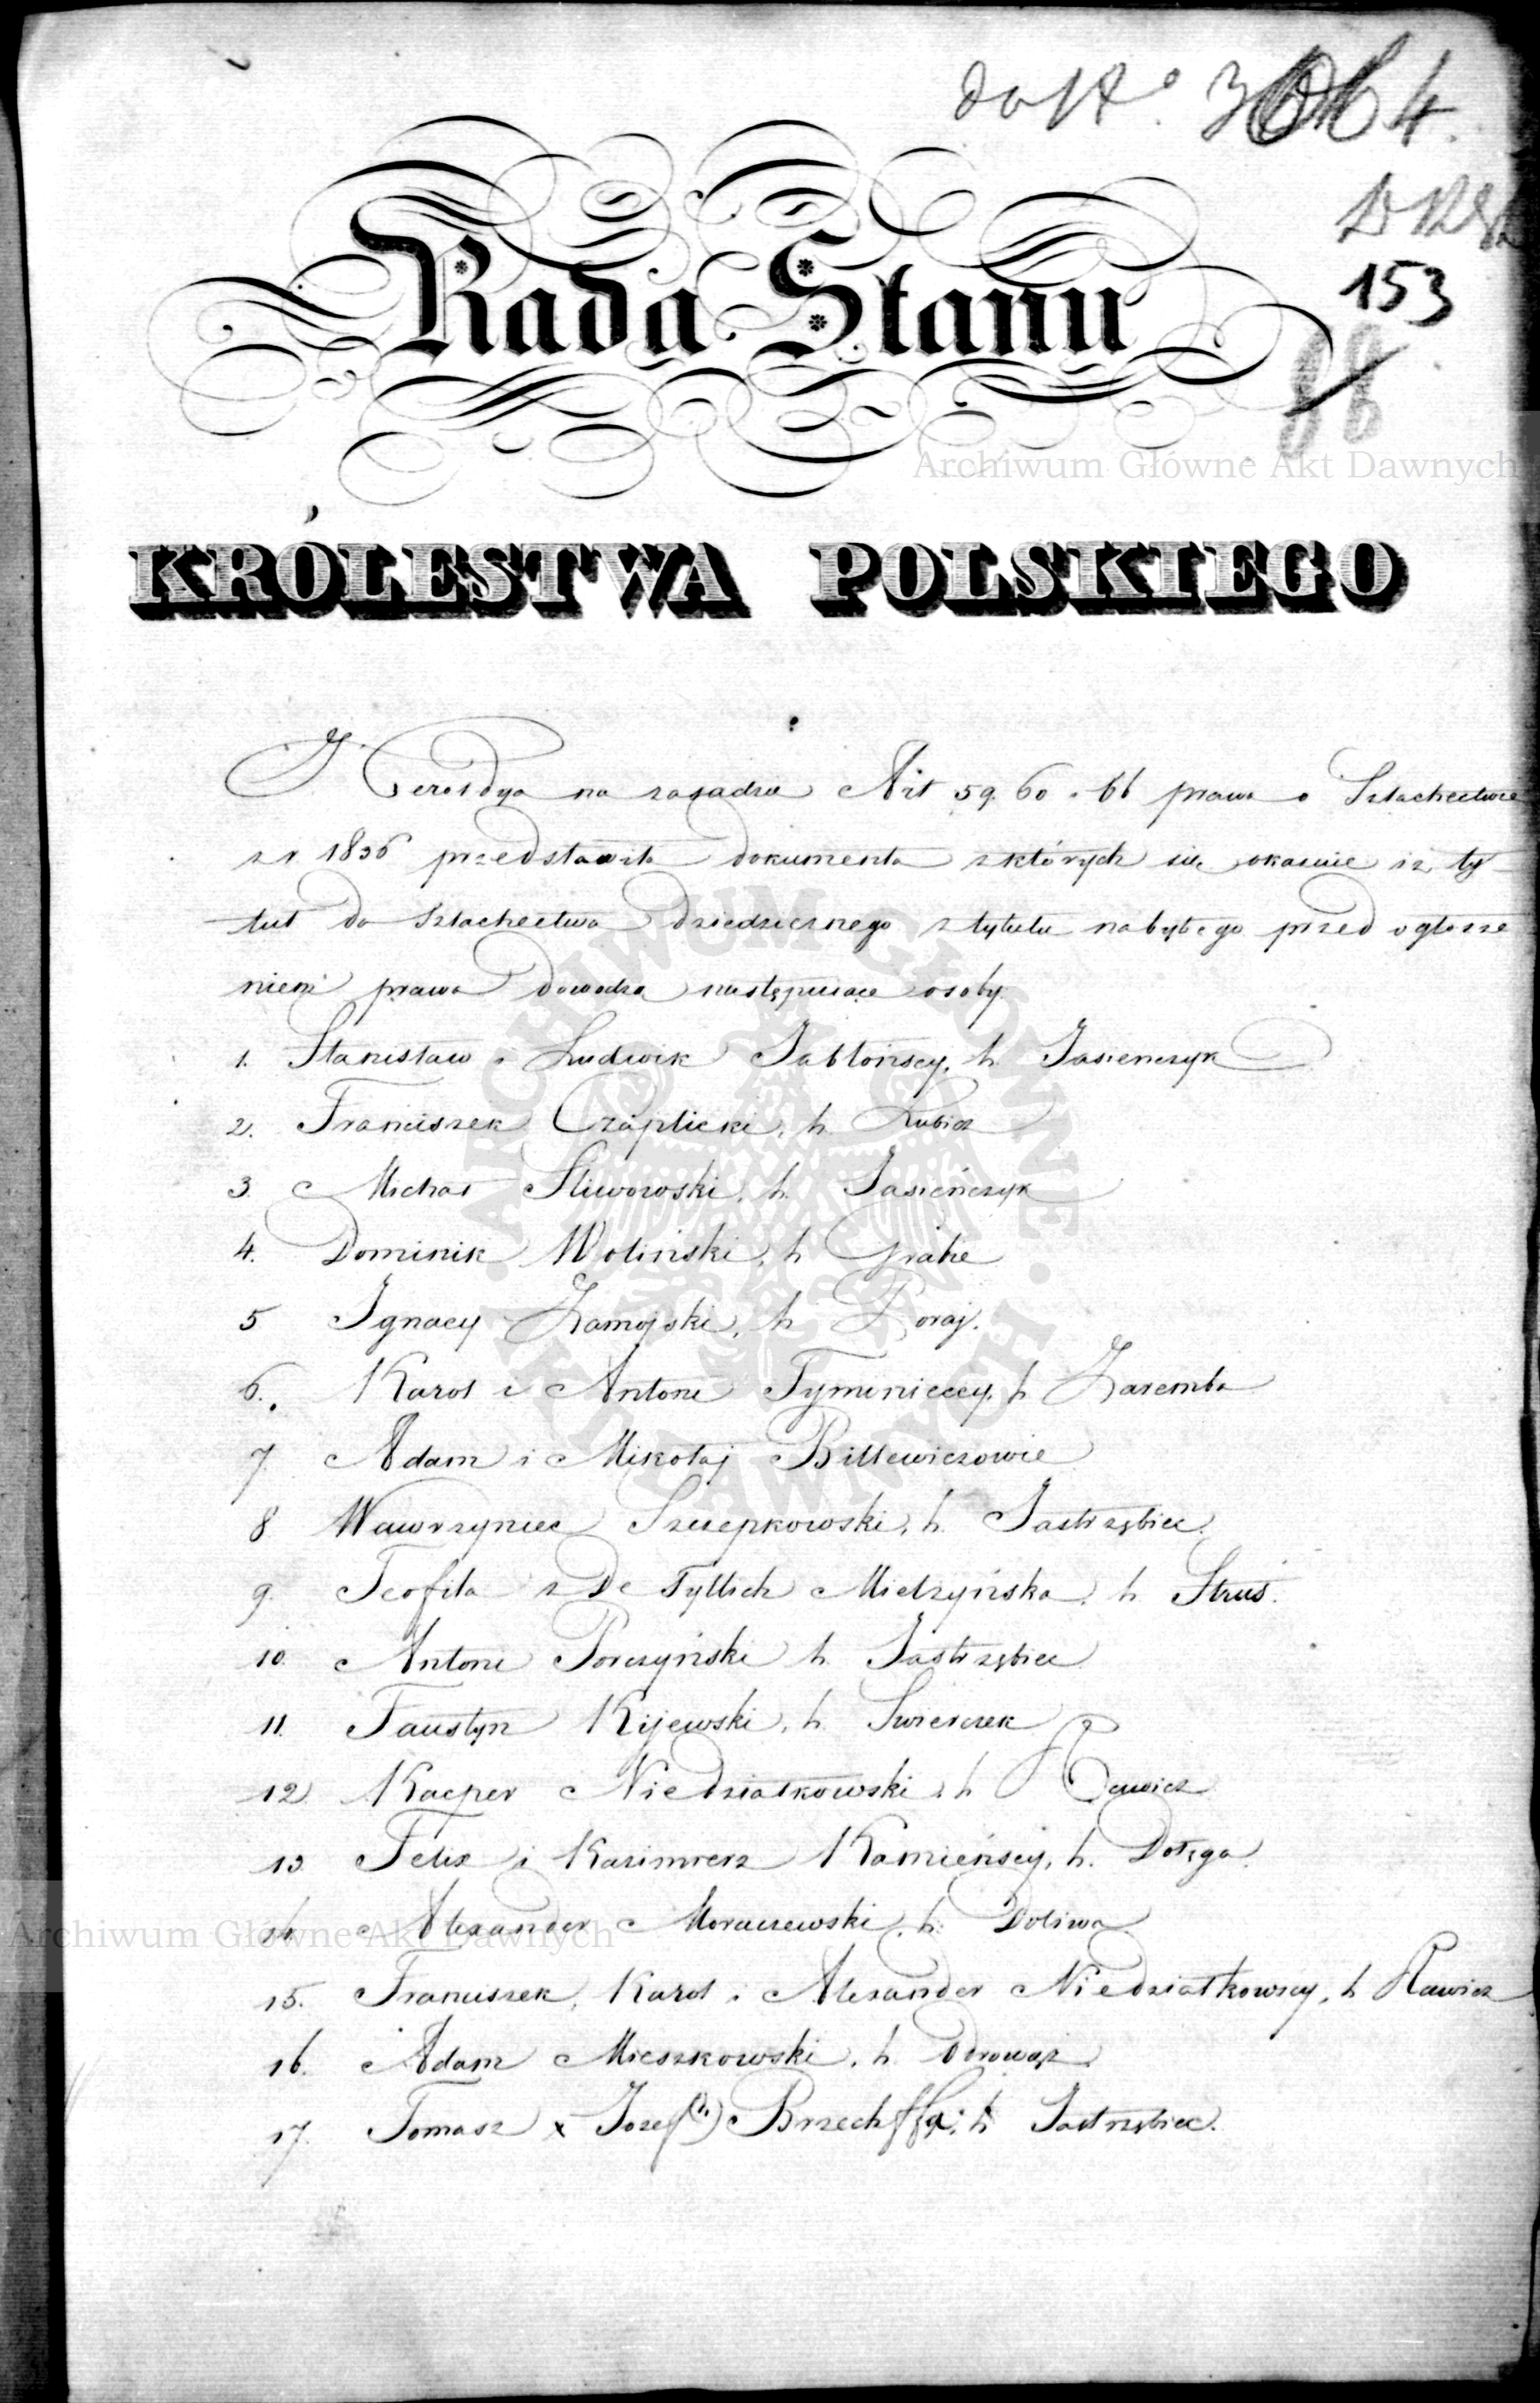 do N° 3064.
153
88
Rada Stanu
Archiwum Główne Akt Dawnych
KRÓLESTWA POLSKIEGO
Heroldya na zasadzie Art 59. 60 i 66 prawa o Szlachectwie
z r. 1836 przedstawiła dokumenta z których się okazuie iż ty-
tuł do Szlachectwa dziedzicznego z tytułu nabytego przed ogłosze
niem prawa dowodzą następuiące osoby
1. Stanisław i Ludwik Jabłońscy, h. Jasieńczyk
2. Franciszek Czaplicki, h. Lubicz
3. Michał Śliwowski, h. Jasieńczyk
4. Dominik Woliński, h. Grabie
5 Ignacy Zamojski, h Poraj.
6. Karol i Antoni Tymienieccy, h Zaremba
7 Adam i Mikołaj Billewiczowie
8 Wawrzyniec Szczepkowski, h. Jastrzębiec.
9. Teofila z De Tyllich Mielżyńska, h. Struś.
10. Antoni Porczyński h. Jastrzębiec
11. Faustyn Kijewski, h. Swierczek
12 Kacper Niedziałkowski, h Rawicz
13 Felix i Kazimierz Kamieńscy, h. Dołęga.
14 Alexander Moraczewski, h. Doliwa
Archiwum Główne Akt Dawnych
15. Franciszek, Karol i Alexander Niedziałkowscy, h Rawicz
16. Adam Mieszkowski, h. Odrowąż
17. Tomasz x Józef (2ch) Brzechffa, h Jastrzębiec.
ARCHIWUM GŁÓWNE AKT DAWNYCH